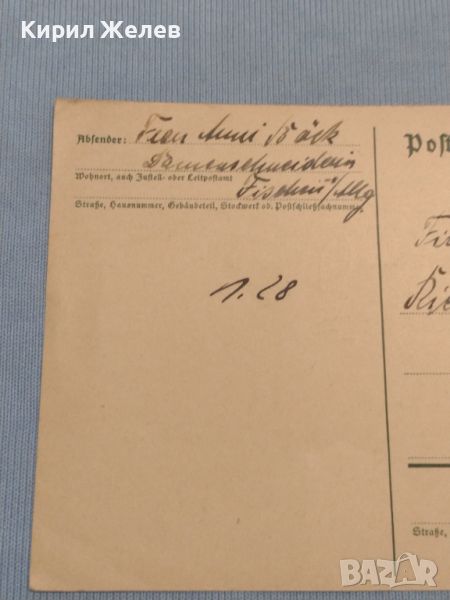 Кирил Желев
Absender: Frau Anni Böck
Damenschneiderin
Wohnort, auch Zustell- oder Leitpostamt
Fischen i/Allg.
Straße, Hausnummer, Gebäudeteil, Stockwerk od. Postschließfachnummer
1.28
Post
Fir
Straße,
BAZAR